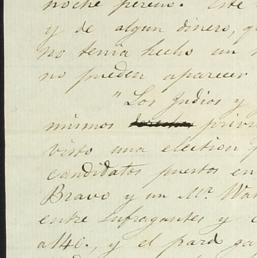 noche
y de algun dinero, q
no tenia hecho un
no pueden aparecer
"Los Judios y
mismos privi
visto una election
candidatos puestos en
Bravo y un Mr. Wa
entre sufragantes y
a 140., y el pard